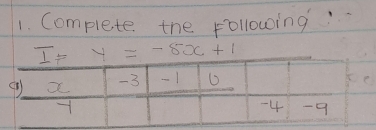 1. Complete the following :-
If y = -5x + 1
a) x -3 -1 0
y -4 -9